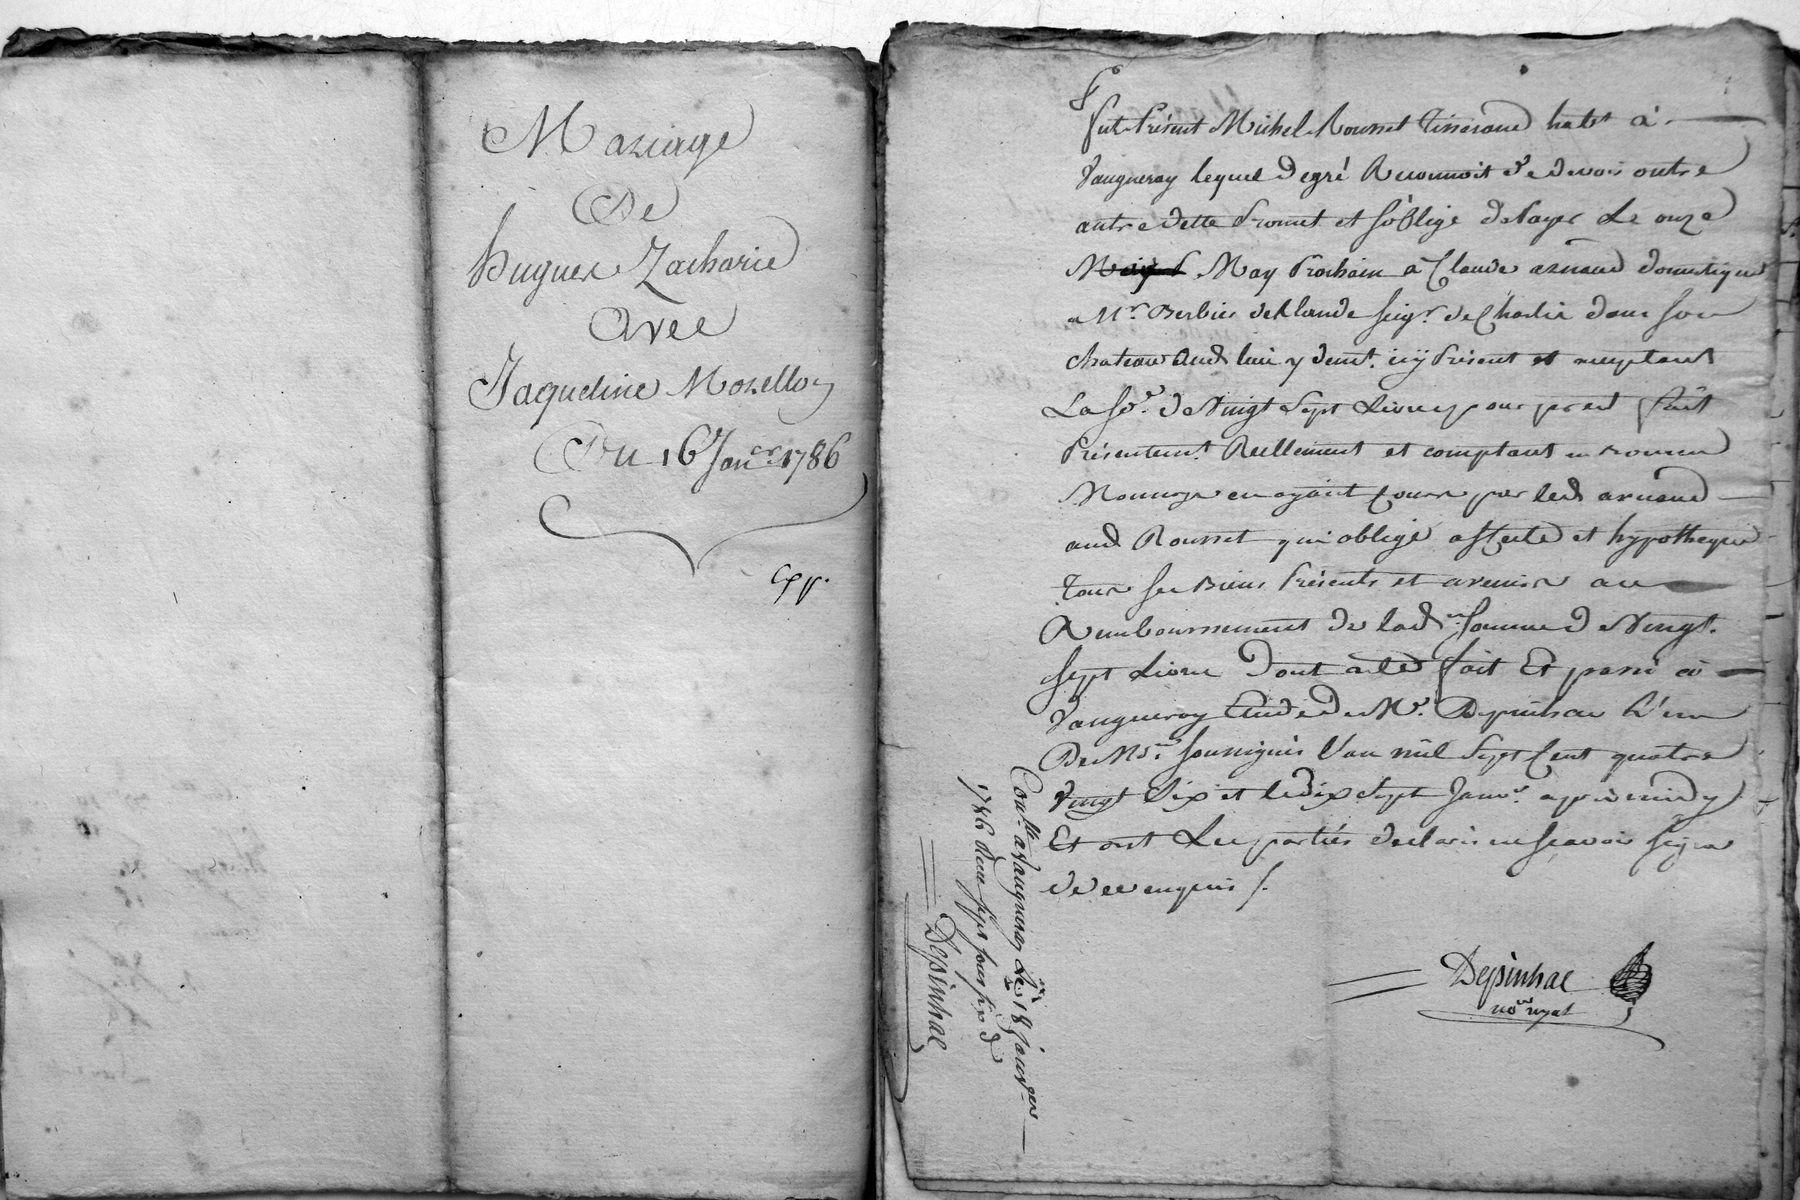 Mariage
De
hugues Zacharie
Avec
Jaqueline Morellon
Du 16 Jan.er 1786
Fut Présent Michel Rousset Tisserand habt à
Vaugneray lequel de gré Reconnoit de devoir outre
autre dette Promet et s'oblige de Payer Le onze
May Prochain à Claude arnaud domestique
a Mr. Berbier de lande seigr. de Charlié dans son
chateau aud. lieu y demt. icy Présent et acceptant
La so.e de Vingt Sept Livres pour pret fait
Présentemt. Reellement et comptant en bonne
Monnoye en ayant Cours par led. arnaud
aud Rousset qui oblige affecte et hypotheque
Tous ses biens Présents et avenir au
Remboursement de lad. somme de Vingt
Sept Livres Dont acte fait Et passé à
Vaugneray Etude de Me. Depinhac L'un
Des Nd. res soussignés l'an mil Sept Cent quatre
Vingt Six et le dix Sept Janv.r après midy
Et ont Les parties declaré ne sçavoir signer
de ce enquis /.
Depinhac
no.re royal
Con.lle a Vaugneray Le 18 Janvier
1786 Reçu sept sous six d
Depinhac